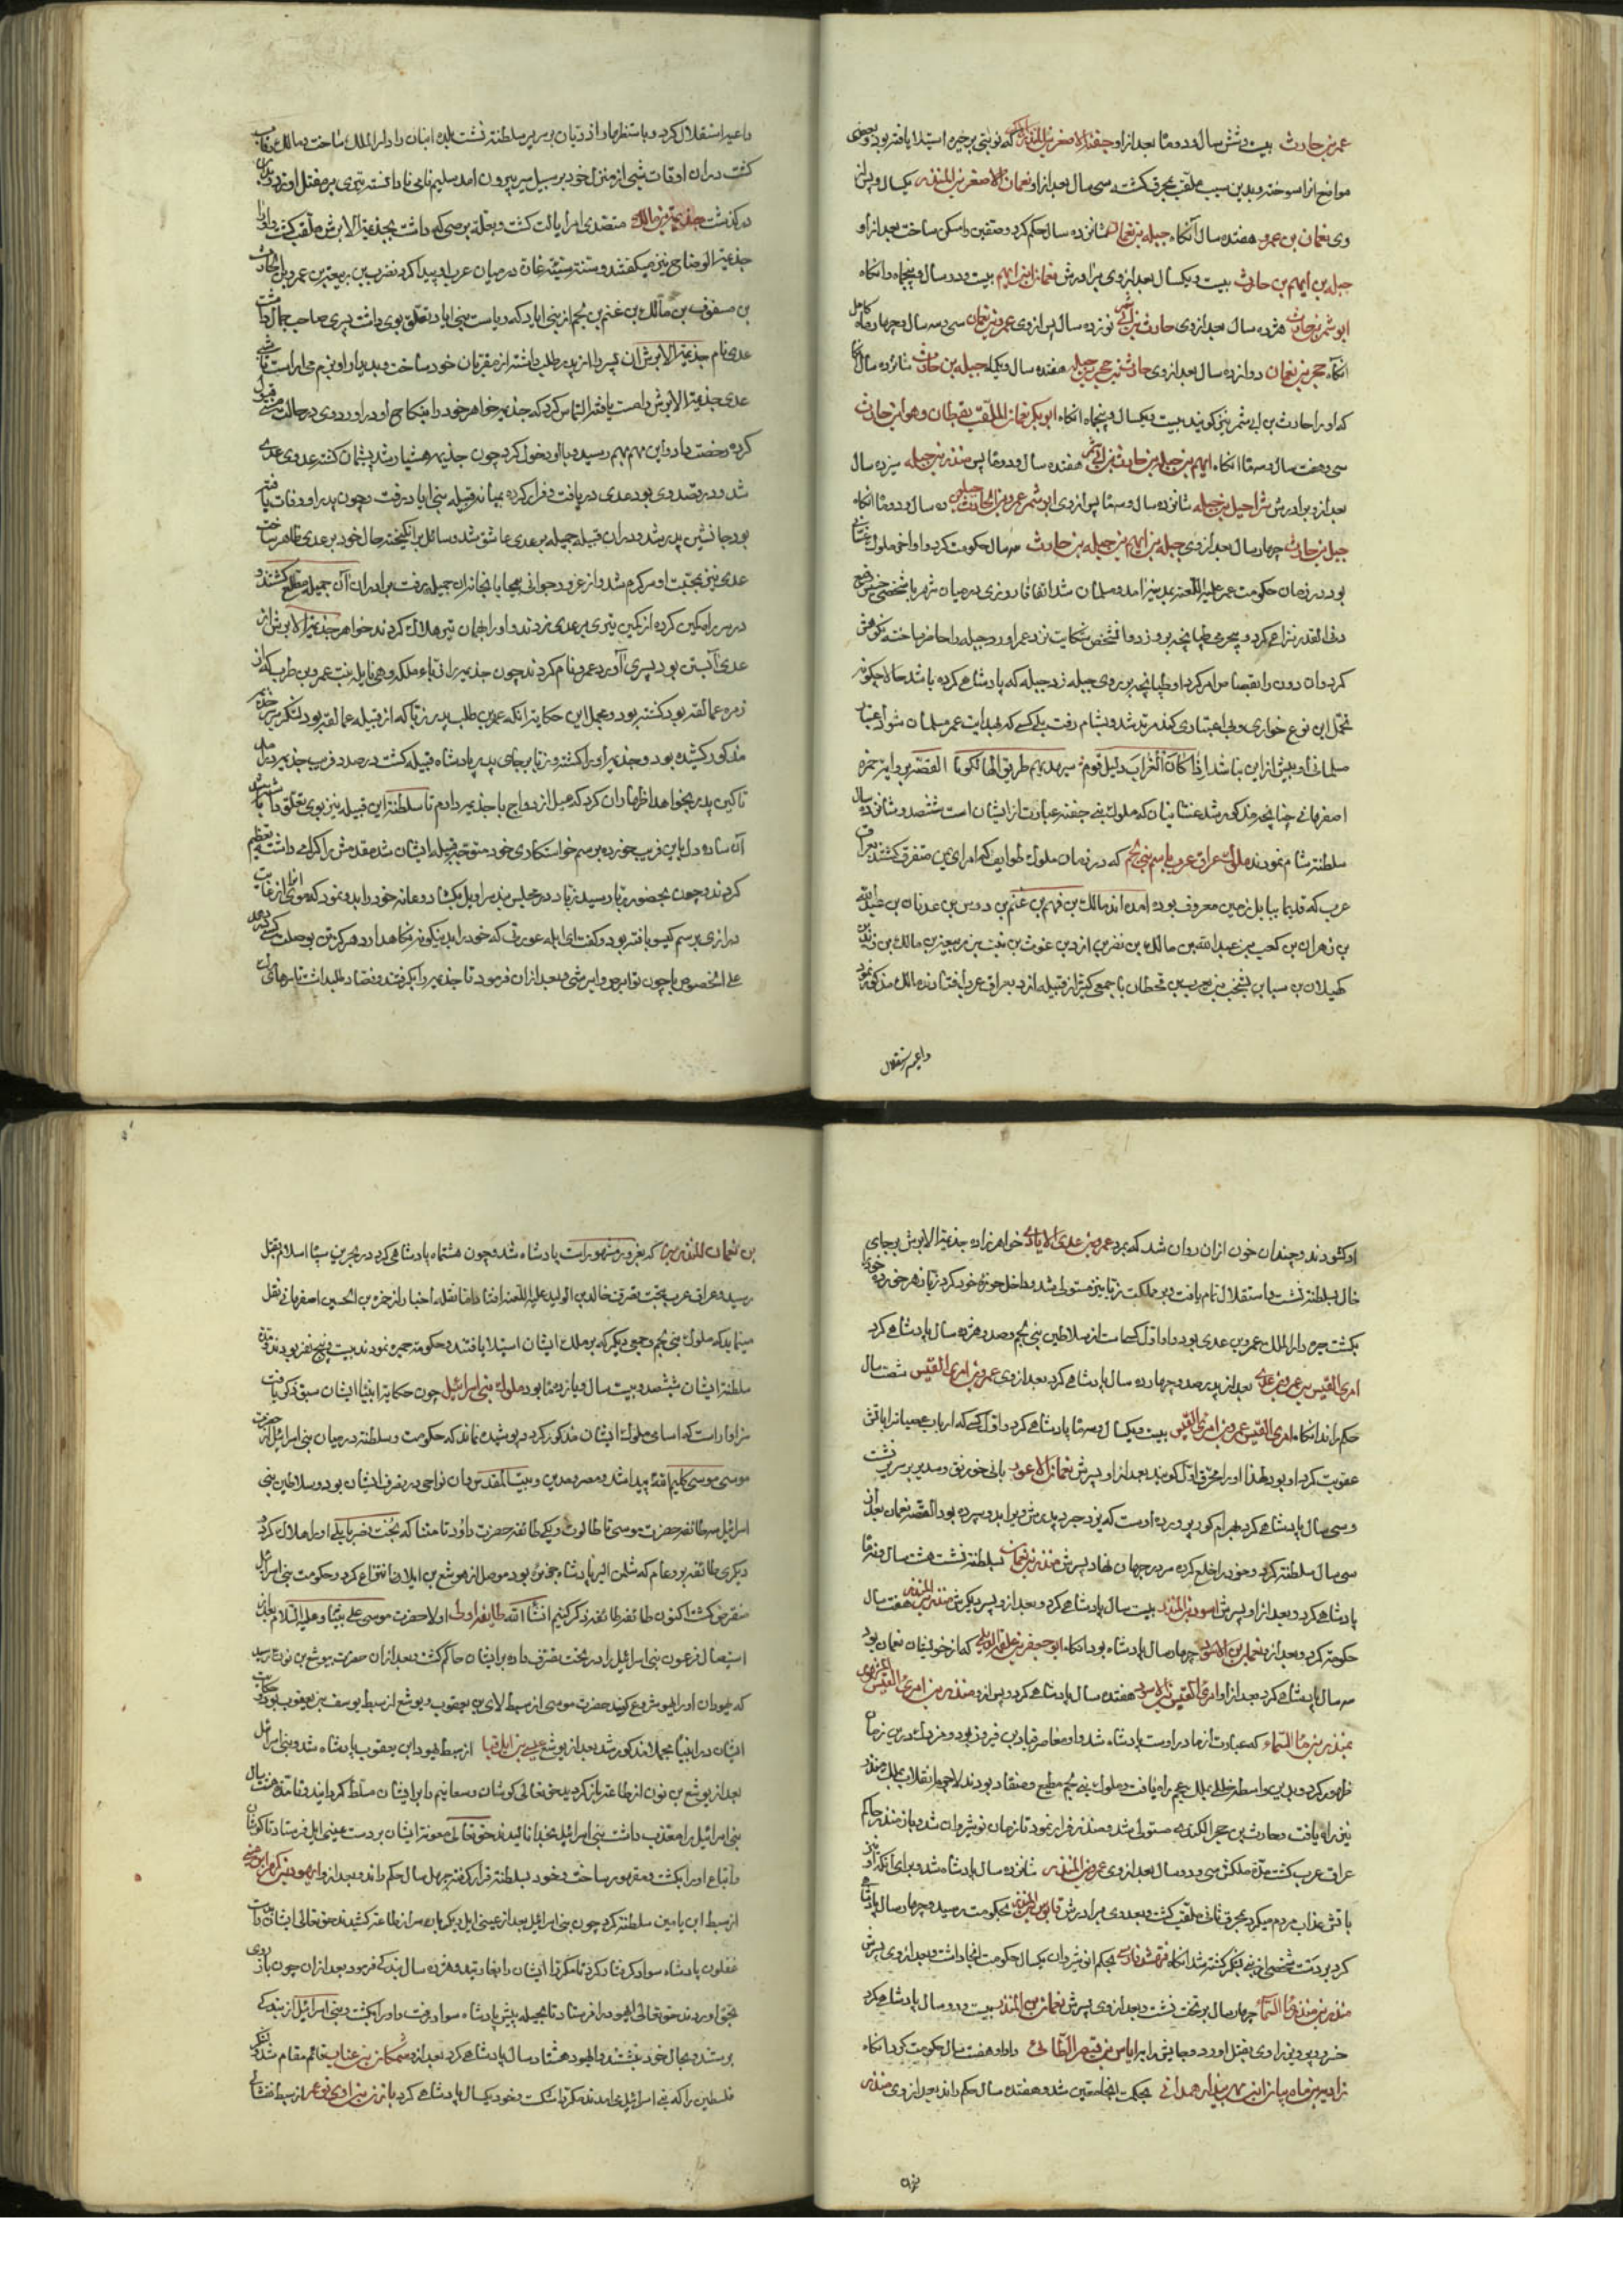 عمرو بن حارث بیست و شش سال و دو ماه بعد از او جفنة الاصغر بن المنذر الاکبر که نوبتی بر حیره استیلا یافته بود و بعضی
مواضع انرا سوخته و بدین سبب ملقب بمحرق کشته سی سال بعد از او نعمان الاصغر بن المنذر یکسال و پس از
وی نعمان بن عمرو هفده سال آنکاه جبلة بن نعمان شانزده سال حکم کرد و صفین را مسکن ساخت بعد از او
جبلة بن ایهم بن حارث بیست و یکسال بعد از وی برادرش نعمان بن ایهم بیست و دو سال و پنجاه و انکاه
ابو شمر بن حارث هژده سال بعد از وی حارث بن ابی شمر نوزده سال پس از وی عمرو بن نعمان سی و سه سال و چهار ماه کامل
انکاه حجر بن نعمان دوازده سال بعد از وی حارث بن حجر بن جبله هفده سال و یکماه جبلة بن حارث شانزده سال
که او را حارث بن ابی شمر نیز کویند بیست و یکسال و پنجماه انکاه ابو بکر نعمان الملقب بقطان و هو ابن حارث
سی و هفت سال و سه ماه انکاه ایهم بن جبلة بن حارث بن ابی شمر هفده سال و دو ماه پس منذر بن جبله سیزده سال
بعد از او برادرش شراحیل بن جبله شانزده سال و سه ماه پس از وی ابو شمر عمرو بن الحارث ده سال و دو ماه انکاه
جبلة بن حارث چهار سال بعد از وی جبلة بن ایهم بن جبلة بن حارث سه سال حکومت کرد و او اخر ملوک غسانی
بود در زمان حکومت عمر بمدینه امد و مسلمان شد اتفاقا روزی در میان شهر با شخصی خسیس وضیع
دنی القدر نزاعی کرد و منجر بطپانچه بر و زد و انشخص شکایت نزد عمر اورد و جبله را حاضر ساخته نکوهش
کرد و ان دون را بقصاص امر کرد او طپانچه بر روی جبله زد جبله که پادشاهی کرده باشد حالا چکونه
تحمل این نوع خواری و بی اعتباری کند مرتد شد و بشام رفت بلی کسی که بهدایت عمر مسلمان شود اعتبار
مسلمانی او بیش از این نباشد اذا کان الغراب دلیل قوم سیهدیهم طریق الهالکینا القصه بروایت حمزه
اصفهانی چنانچه مذکور شد غسانیان که ملوک بنی جفنه عبارت از ایشان است ششصد و شانزده سال
سلطنة شام نمودند ملوک عراق عرب باسم بنی لخم که در زمان ملوک طوایف که امرای یمن متفرق کشتند بعراق
عرب که قدیما ببابل زمین معروف بوده امده اند مالک بن فهم بن غنم بن دوس بن عدنان بن عبدالله
بن زهران بن کعب بن عبدالله بن مالک بن نضر بن ازد بن غوث بن نبت بن ربیعة بن مالک بن زید بن
کهلان بن سبا بن یشجب بن یعرب بن قحطان با جمعی کثیر از قبیله ازد بعراق عرب افتادند مالک مذکور
داعیه استقلال
داعیه استقلال کرد و با ستظهار ازدیان بر سریر سلطنة نشست بلده انبار را دارالملک ساخت و مالک
کشت در ان اوقات شبی از منزل خود بر سبیل سیر بیرون امد سلیمه نامی نادانسته تیری بر مقتل او زد
در کذشت جذیمة بن مالک متصدی امر ایالت کشت و بعلة برصی که داشت بجذیمة الابرش ملقب کشت و او را
جذیمة الوضاح نیز میکفتند
بن مسعود بن مالک بن غنم بن لخم از بنی ایاد که ریاست بنی ایاد تعلق بوی داشت پسری صاحب جمال داشت
عدی نام جذیمة الابرش ان پسر را از پدر طلب داشته از مقربان خود ساخت و بدیدار او بزم می اراست
عدی جذیمة الابرش را مست یافته التماس کرد که جذیمه خواهر خود را بنکاح او در اورد وی در حالت مستی قبول
کرده رخصت داد و
شد و در صدد وی بود عدی دریافت و فرار کرده بمیان قبیله بنی ایاد رفت و چون پدر او وفات یافته
بود جانشین پدر شد و در ان قبیله جمیله بر عدی عاشق شد و وسائل بر انکیخته حال خود بر عدی ظاهر ساخت
عدی نیز بمحبت او سرکرم شد و از غرور جوانی بیمحابا بخانه ان جمیله رفت برادران آن جمیله مطلع کشتند و
در سر راه کمین کرده از کمین تیری بر عدی زدند و او را بهمان تیر هلاک کردند خواهر جذیمة الابرش از
عدی آبستن بود پسری آورد عمرو نام کردند
زمره عمالقه بود کشته بود
مذکور کشیده بود و جذیمه او را کشته و زبا بر جای پدر پادشاه قبیله کشت در صدد فریب جذیمه در امد
تا کین پدر بخواهد اظهار ان کرد که میل ازدواج با جذیمه دارم تا سلطنة این قبیله نیز بوی تعلق داشته باشد
آن ساده دل این فریب خورده برسم خواستکاری خود متوجه قبیله ایشان شد مقدمش را کرامی داشتند تعظیم
کردند و چون بحضور زبا رسید
درازی برسم کیسو بافته بود و کفت ای ابله عورتی که خود را بدینکونه نکاهدارد هرکز تن بوصلت کسی در دهد
علی الخصوص با چون تو ابرص و ابرشی و بعد از ان فرمود تا جذیمه را بکرفتند و فصاد طلبداشت
او کشودند و چندان خون از ان روان شد که بمرد عمرو بن عدی الایادی خواهرزاده جذیمة الابرش بر جای
خال بسلطنة نشست و استقلال تمام یافت و بر مملکت زبا نیز مستولی شد و داخل حوزه خود کرد زبا زهر خورده خود را
بکشت حیره دارالملک عمرو بن عدی بود و او اول کسی است از سلاطین بنی لخم و صد و هژده سال پادشاهی کرد
امرئ القیس بن عمرو بن عدی بعد از پدر صد و چهارده سال پادشاهی کرد بعد از وی عمرو بن امرئ القیس شصت سال
حکم راند انکاه امرئ القیس عمرو بن امرئ القیس بیست و یکسال و سه ماه پادشاهی کرد و اول کسی که ارباب عصیانرا باتش
عقوبت کرد او بود لهذا او را محرق اول کویند بعد از او پسرش نعمان الاعور بانی خورنق و سدیر بر سریر نشست
و سی سال پادشاهی کرد بهرام کور پرورده اوست که یزدجرد پدرش ویرا بدو سپرده بود القصه نعمان بعد از
سی سال سلطنة کرد و خود را خلع کرده سر در جهان نهاد پسرش منذر بن نعمان بسلطنة نشست هشت سال و نه ماه
پادشاهی کرد و بعد از او پسرش اسود بن المنذر بیست سال پادشاهی کرد و بعد از او پسر دیکرش منذر بن المنذر هفت سال
حکومة کرد و بعد از او نعمان بن الاسود چهار سال پادشاه بود انکاه ابو جعفر بن علقمه که از خویشان نعمان بود
سه سال پادشاهی کرد بعد از او امرئ القیس بن الاسود هفده سال پادشاهی کرد و پس از او منذر بن امرئ القیس
بمنذر بن ماء السماء که عبارت از مادر اوست پادشاه شد و او معاصر قباد بن فیروز بود و مزدک در این زمان
ظهور کرد و بدین واسطه خللی بملک عجم راه یافت و ملوک بنی لخم مطیع و منقاد بودند لاجرم انقلاب بملک منذر
نیز راه یافت و حارث بن حجر الکندی مستولی شد و منذر فرار نمود تا زمان نوشیروان شد و باز منذر حاکم
عراق عرب کشت مدة ملکش سی و دو سال بعد از وی عمرو بن المنذر شانزده سال پادشاه شد و برای آنکه او
باتش عذاب مردم میکرد بمحرق ثانی ملقب کشت و بعد وی برادرش قابوس بن المنذر بحکومت رسید و چهار سال پادشاهی
کرد
منذر بن منذر ماء السماء چهار سال بر تخت نشست و بعد از وی پسرش نعمان بن المنذر بیست و دو سال پادشاهی کرد
خسرو پرویز او را بقتل اورد و بجایش ایاس بن قبیصة الطائی را داد و او هفت سال حکومت کرد انکاه
زادیه بن ماه بیان بن مهر بنداد همدانی بحکومت انجا معین شد و هفده سال حکم راند بعد از وی منذر
بن
بن نعمان المنذر که بغرور مشهور است پادشاه شد و چون هشتماه پادشاهی کرد در بحرین سپاه اسلام بقتل
رسید و عراق عرب بتحت تصرف خالد بن الولید افتاد ناقلان اخبار از حمزه بن الحسین اصفهانی نقل
مینمایند که ملوک بنی لخم و جمعی دیکر که بر ملک ایشان استیلا یافتند و حکومة حیره نمودند بیست و پنج نفر بودند و مدة
سلطنة ایشان ششصد و بیست سال و یازده ماه بود ملوک بنی اسرائیل چون حکایة انبیاء ایشان سبق ذکر یافت
سزاوار است که اسامی ملوک ایشان مذکور کردد پوشیده نماند که حکومت و سلطنة در میان بنی اسرائیل از حضرت
موسی کلیم الله پیدا شد و مصر و مدین و بیت المقدس و ان نواحی در تصرف ایشان بود و سلاطین بنی
اسرائیل سه طائفه حضرت موسی تا طالوت و یکی طائفه حضرت داود تا متنیا که بخت نصر بابلی او را هلاک کرد و
دیکری طائفه
منقرض کشت اکنون طائفه طائفه ذکر کنیم انشاء الله طایفه اولی اولا حضرت موسی علی نبینا و علیه السلام بعد از
استیصال فرعون بنی اسرائیل را در تحت تصرف داده بر ایشان حاکم کشت و بعد از ان حضرت یوشع بن نون رسید
که یهودان او را یهوشوع کویند حضرت موسی از سبط لاوی بن یعقوب و یوشع از سبط یوسف بن یعقوب بود و حکایت
ایشان در انبیاء مجملا مذکور شد بعد از یوشع از سبط یهودا بن یعقوب پادشاه شد و بنی اسرائیل
بعد از یوشع بن نون از طاعة باز کردیدند حق تعالی کوشان را بر ایشان مسلط کردانید و تا مدة هشت سال
بنی اسرائیل را معذب داشت بنی اسرائیل بخدا نالیدند حق تعالی
و اتباع او را بکشت و مقهور ساخت و خود بسلطنة قرار کرفته چهل سال حکم راند و بعد از او ایهود بن کرا
از سبط ابن یامین سلطنة کرد چون بنی اسرائیل بعد از عتنی ایل دیکر بار سر از طاعة کشیدند حق تعالی ایشان را بدست
عقلون پادشاه سواد کرفتار کرد
بحق اوردند حق تعالی ایهود را فرستاد تا بحیله پیش پادشاه سواد رفت و او را بکشت و بنی اسرائیل از بندکی
بر شد و بحال خود نشستند و ایهود هشتاد سال پادشاهی کرد بعد از او شمکار بن عناث قائم مقام شد
فلسطین را که با بنی اسرائیل